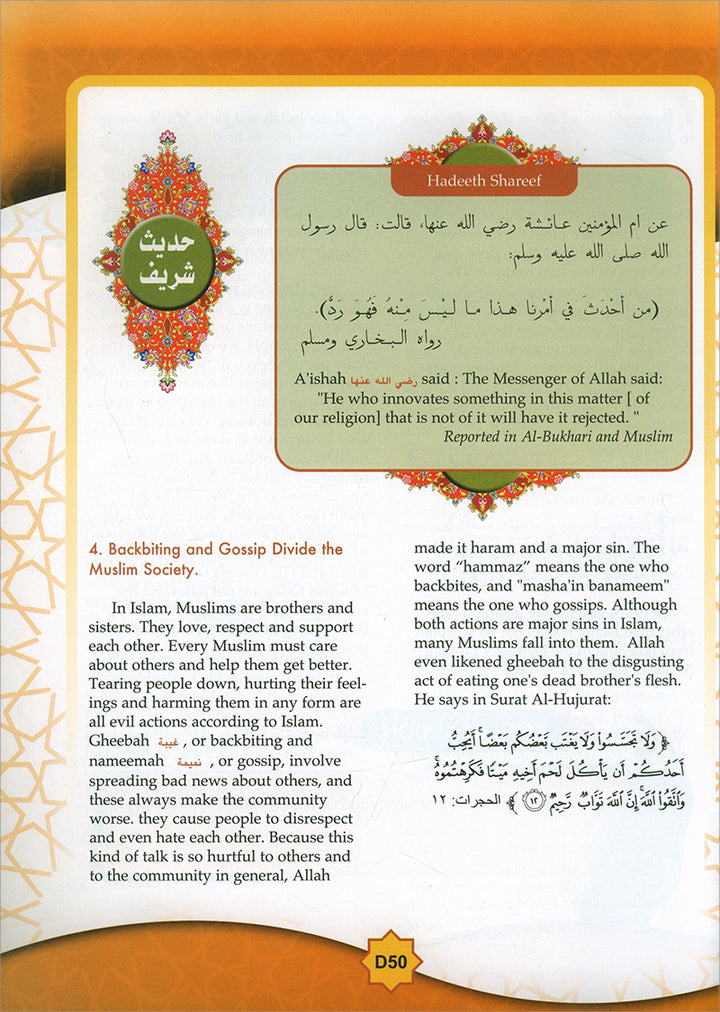 حديث
شريف
Hadeeth Shareef
عن ام المؤمنين عائشة رضي الله عنها، قالت: قال رسول
الله صلى الله عليه وسلم:
(من أحْدَثَ في أمْرنا هـذا مـا ليْـسَ مـنهُ فَهُـوَ رَدٌّ).
رواه البخاري ومسلم
A'ishah رضي الله عنها said : The Messenger of Allah said:
"He who innovates something in this matter [ of
our religion] that is not of it will have it rejected. "
Reported in Al-Bukhari and Muslim
4. Backbiting and Gossip Divide the
Muslim Society.
In Islam, Muslims are brothers and
sisters. They love, respect and support
each other. Every Muslim must care
about others and help them get better.
Tearing people down, hurting their feel-
ings and harming them in any form are
all evil actions according to Islam.
Gheebah غيبة , or backbiting and
nameemah نميمة , or gossip, involve
spreading bad news about others, and
these always make the community
worse. they cause people to disrespect
and even hate each other. Because this
kind of talk is so hurtful to others and
to the community in general, Allah
made it haram and a major sin. The
word “hammaz” means the one who
backbites, and "masha'in banameem"
means the one who gossips. Although
both actions are major sins in Islam,
many Muslims fall into them. Allah
even likened gheebah to the disgusting
act of eating one's dead brother's flesh.
He says in Surat Al-Hujurat:
﴿ وَلَا تَجَسَّسُوا۟ وَلَا يَغْتَب بَّعْضُكُم بَعْضًا ۚ أَيُحِبُّ
أَحَدُكُمْ أَن يَأْكُلَ لَحْمَ أَخِيهِ مَيْتًا فَكَرِهْتُمُوهُ ۚ
وَٱتَّقُوا۟ ٱللَّهَ ۚ إِنَّ ٱللَّهَ تَوَّابٌ رَّحِيمٌ ١٢ ﴾ الحجرات: ١٢
D50